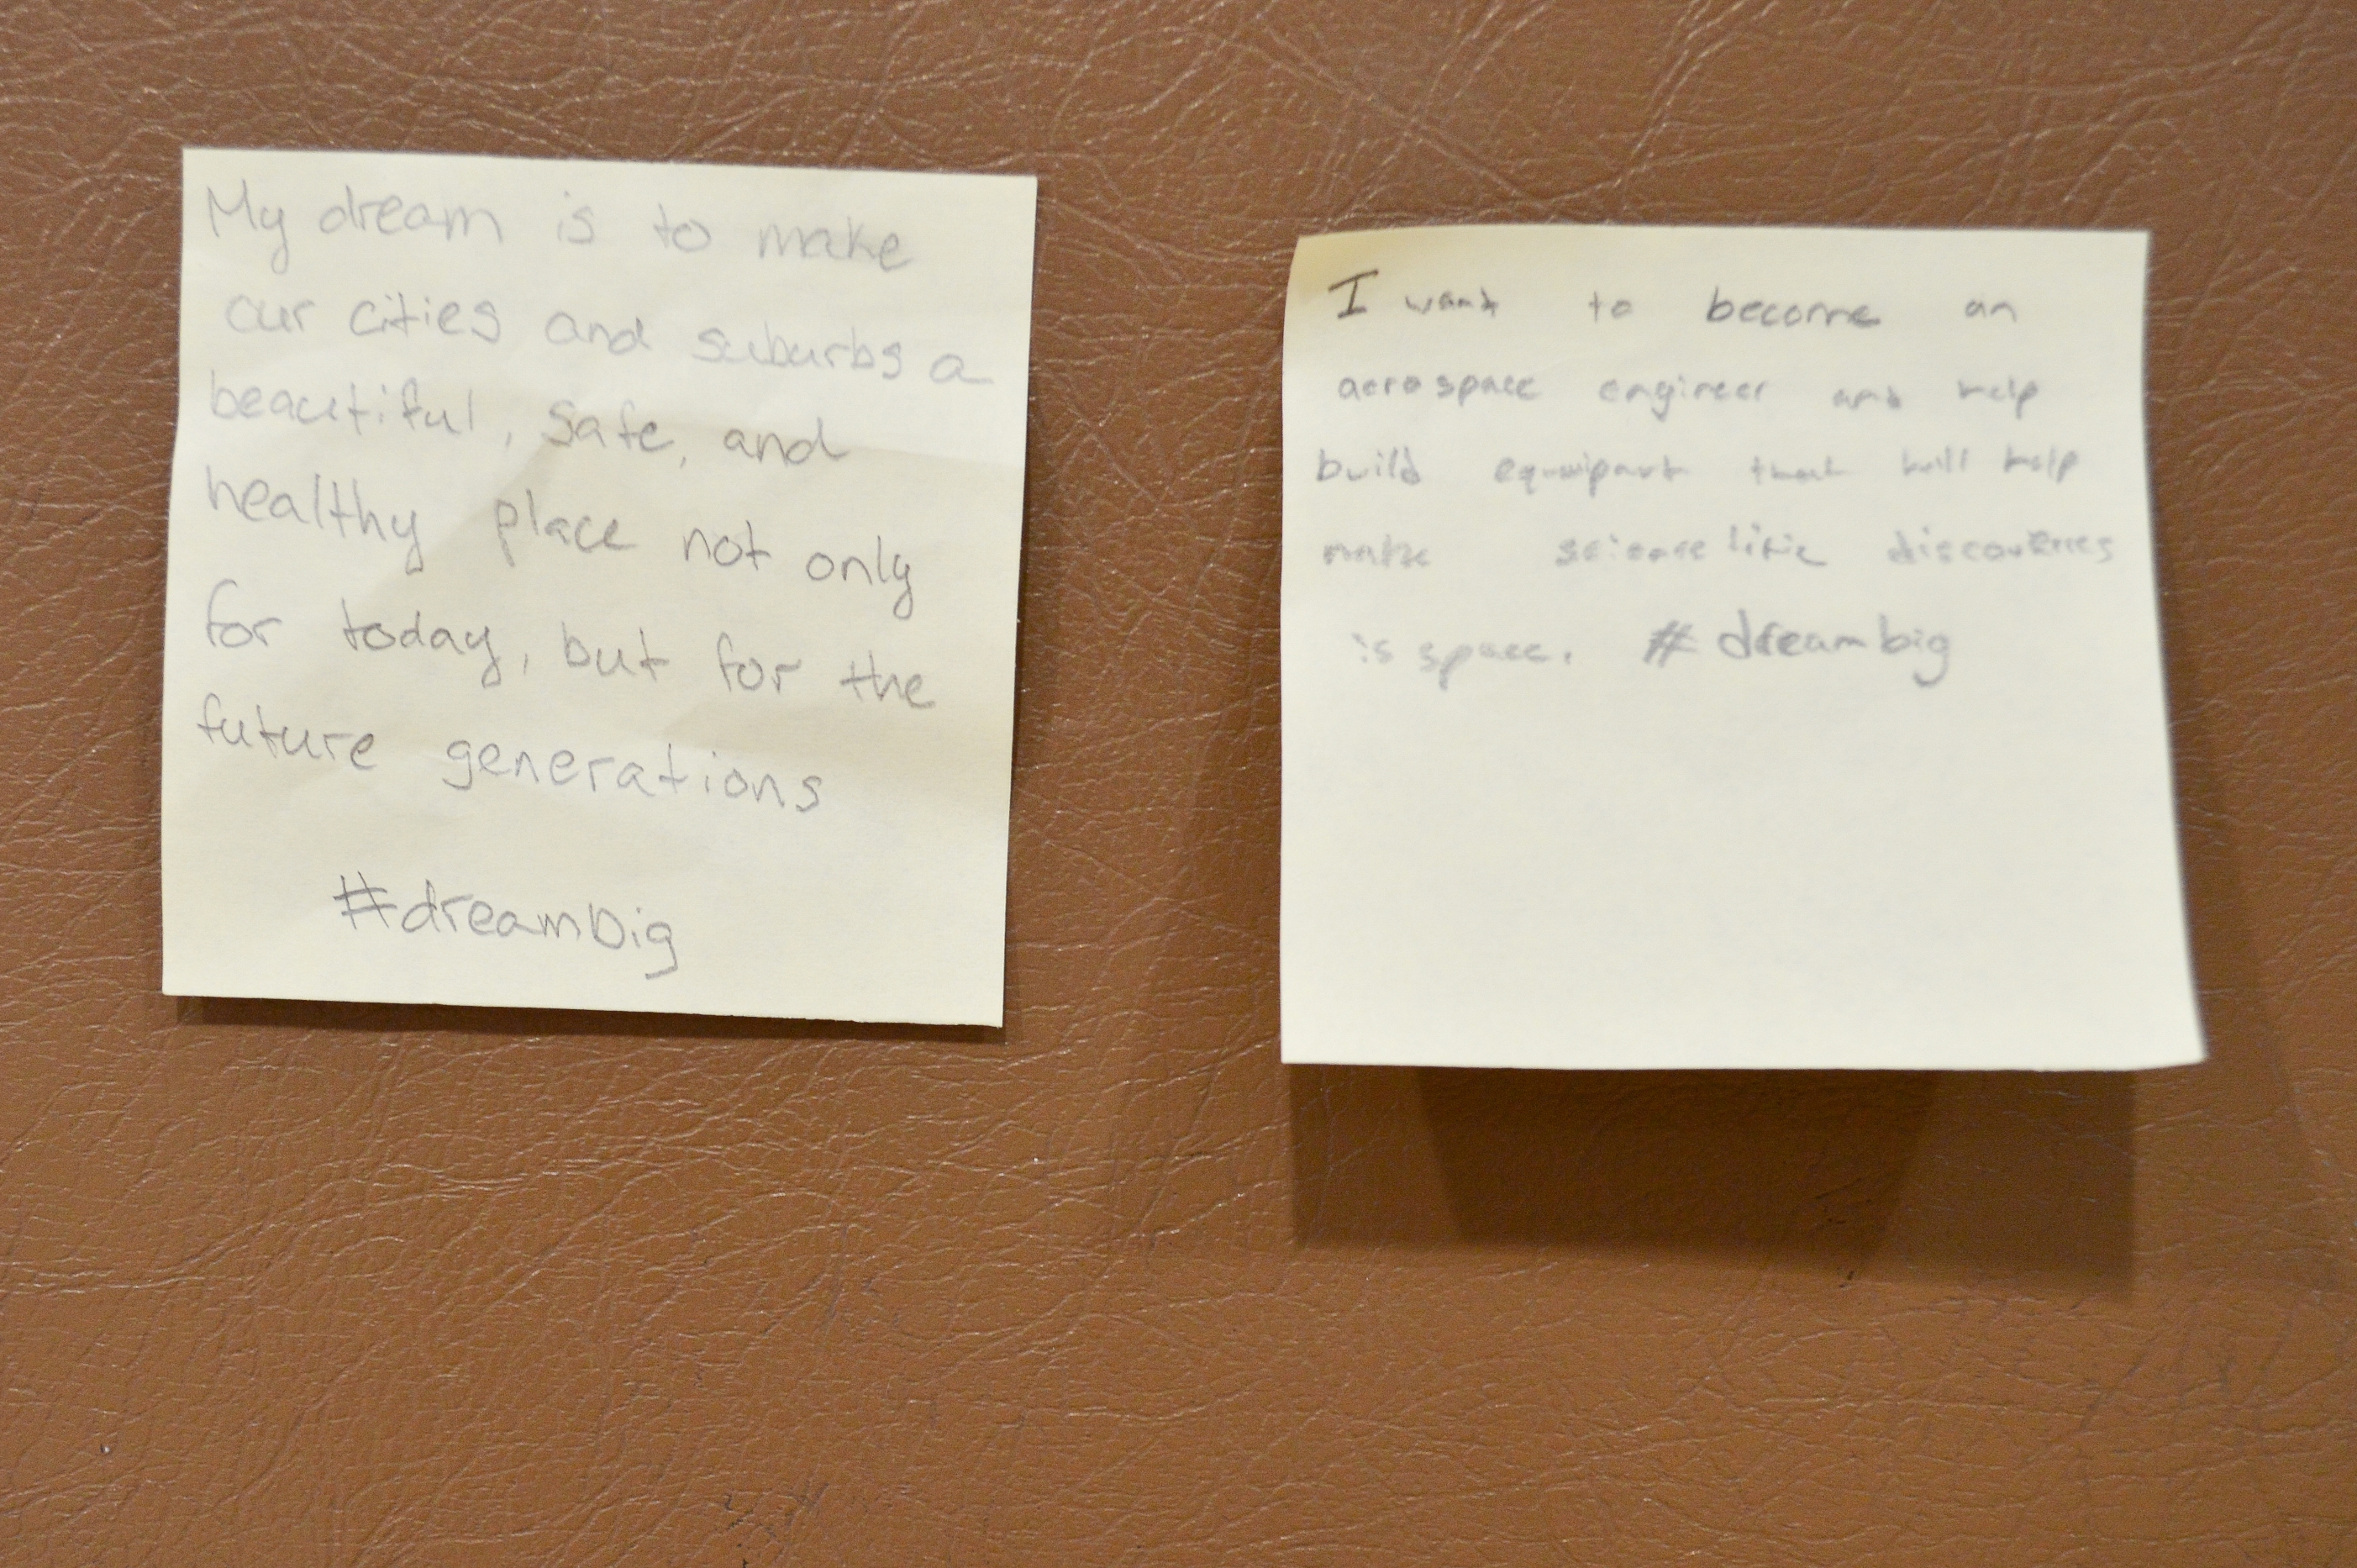 My dream is to make
our cities and suburbs a
beautiful, safe, and
healthy place not only
for today, but for the
future generations
#dreambig
I want to become an
aerospace engineer and help
build that will help
make discoveries
is space. #dreambig